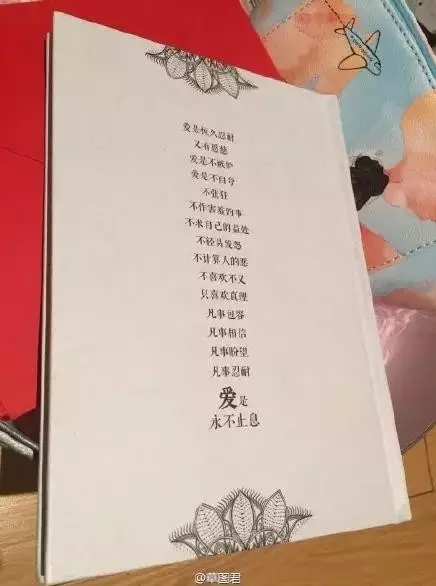 爱是恒久忍耐
又有恩慈
爱是不嫉妒
爱是不自夸
不张狂
不作害羞的事
不求自己的益处
不轻易发怒
不计算人的恶
不喜欢不义
只喜欢真理
凡事包容
凡事相信
凡事盼望
凡事忍耐
爱是
永不止息
@草图君